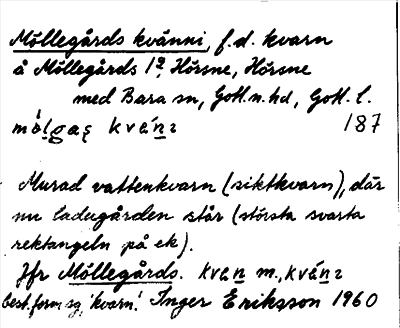 Möllegårds kvänni, f.d. kvarn
å Möllegårds 1², Hörsne, Hörsne
med Bara sn, Gotl.n.hd, Gotl. l.
187
Murad vattenkvarn (siktkvarn), där
nu ladugården står (största svarta
rektangeln på ek).
Jfr Möllegårds. kván m.,
best.form sg. 'kvarn'. Inger Eriksson 1960